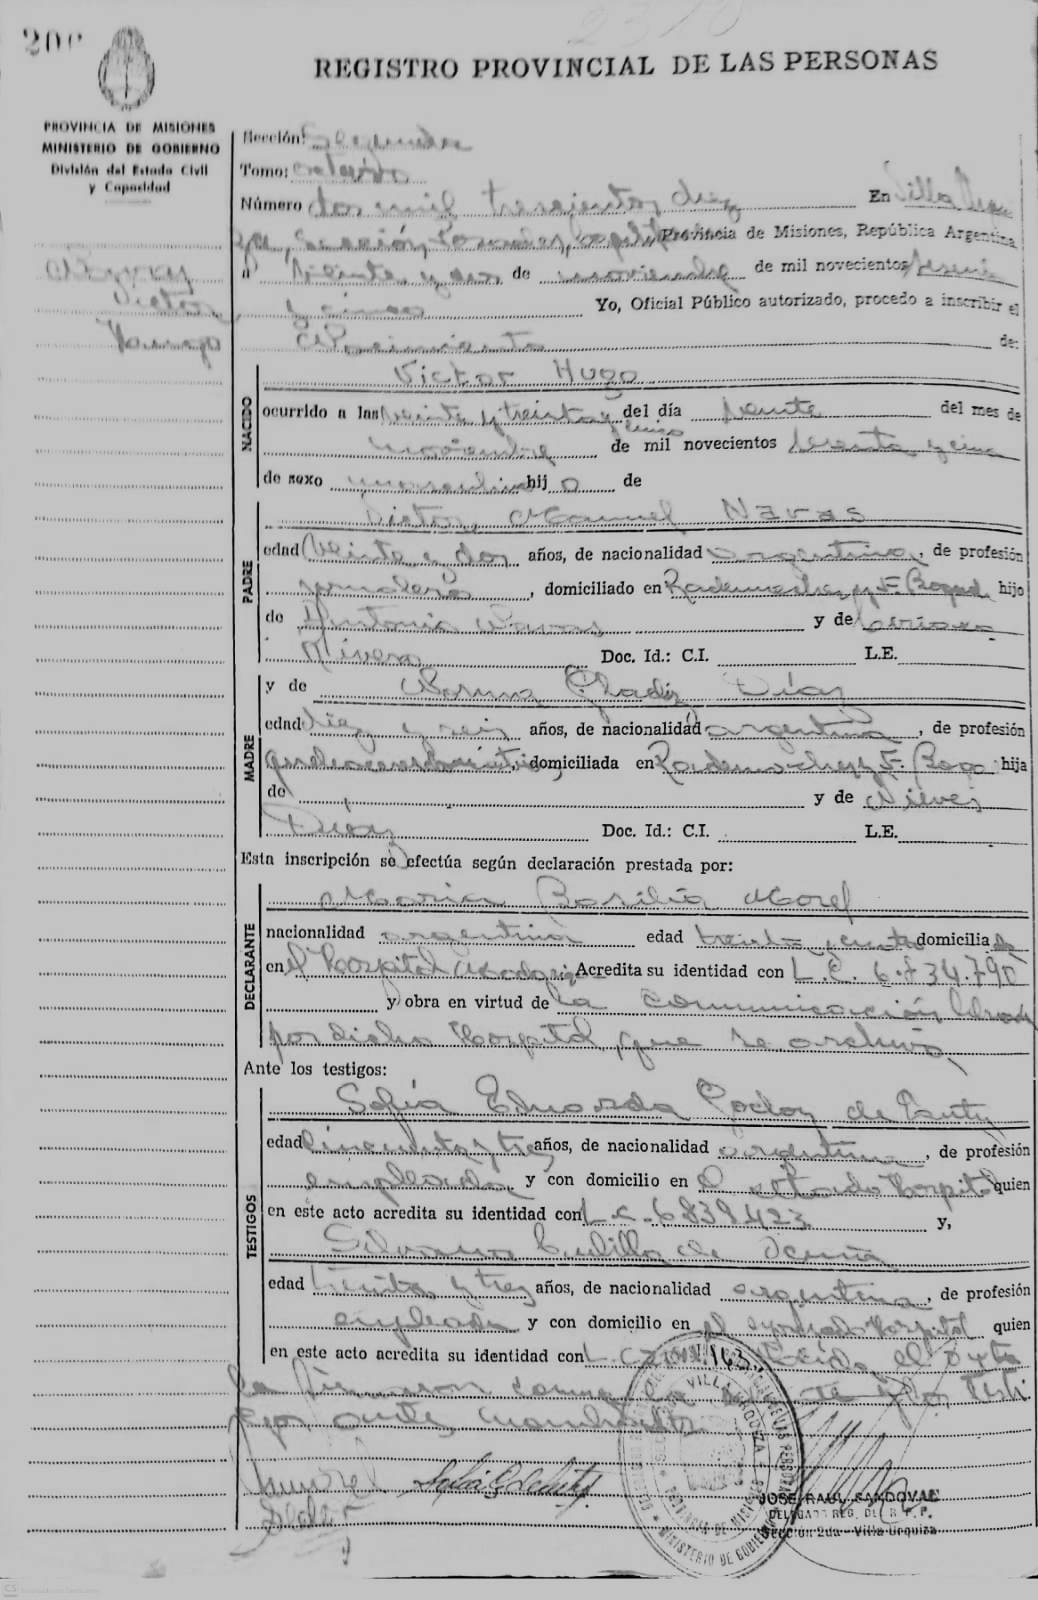 REGISTRO PROVINCIAL DE LAS PERSONAS
PROVINCIA DE MISIONES
MINISTERIO DE GOBIERNO
División del Estado Civil
y Capacidad
Navas
Victor
Hugo
Sección: Segunda
Tomo: octavo
Número dos mil trescientos diez En Villa Urqui
za, Sección, Posadas, Capital Provincia de Misiones, República Argentina
a veinte y dos de noviembre de mil novecientos sesenta
y cinco Yo, Oficial Público autorizado, procedo a inscribir el
Nacimiento de:
NACIDO
Victor Hugo
ocurrido a las veinte y treinta y cinco del día veinte del mes de
noviembre de mil novecientos sesenta y cinco
de sexo masculino hijo de
PADRE
Victor Manuel Navas
edad veinte y dos años, de nacionalidad argentina, de profesión
jornalero, domiciliado en Rademacher y F. Bogad hijo
de Antonio Navas y de
Rivero Doc. Id.: C.I. L.E.
MADRE
y de Norma Gladis Díaz
edad diez y seis años, de nacionalidad argentina, de profesión
quehaceres domésticos, domiciliada en Rademacher y F. Boga hija
de y de Nieves
Díaz Doc. Id.: C.I. L.E.
Esta inscripción se efectúa según declaración prestada por:
DECLARANTE
Maria Basilia Morel
nacionalidad argentina edad treinta y cuatro domicilia da
en el Hospital Madariaga Acredita su identidad con L.C. 6.734.790
y obra en virtud de la comunicación librada
por dicho Hospital, que se archiva.
Ante los testigos:
TESTIGOS
Sofía Eduarda Godoy de
edad cincuenta y tres años, de nacionalidad argentina, de profesión
empleada y con domicilio en el citado Hospital quien
en este acto acredita su identidad con L.C. 6839423 y,
Silvana de Acuña
edad treinta y tres años, de nacionalidad argentina, de profesión
empleada y con domicilio en el expresado Hospital quien
en este acto acredita su identidad con L.C. Leída el acta
la firmaron conmigo la y los testi
gos ante
JOSE RAUL SANDOVAL
DELEGADO REG. DE R. P. P.
Sección 2da - Villa Urquiza